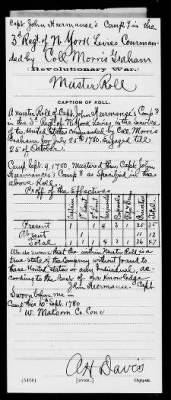 Capt John Hermance's Comp'y in the
3d Regt of N. York Levies Comman-
ded by Coll Morris Graham
Revolutionary War.
Muster Roll
CAPTION OF ROLL.
A muster Roll of Capt John Hermance's Comp'y
in the 3d Regt of N. York Levies in the service
of the United States commanded by Coll Morris
Graham for July 25th 1780 engaged till
25 of October.
Camp Sept 9 1780 Mustered then Capt John
Hermance's Comp'y as specified in the
above Roll.
Proff of the Effectives
Captain
Total
Present
Absent
Total
We do swear that the within Muster Roll is a
true state of the Company without fraud to
these United States or any Individual, ac-
cording to the Best of our Knowledge
John Hermance Capt
Sworn before me in
Camp this 10 Sept 1780
A H Davis
Copyist.